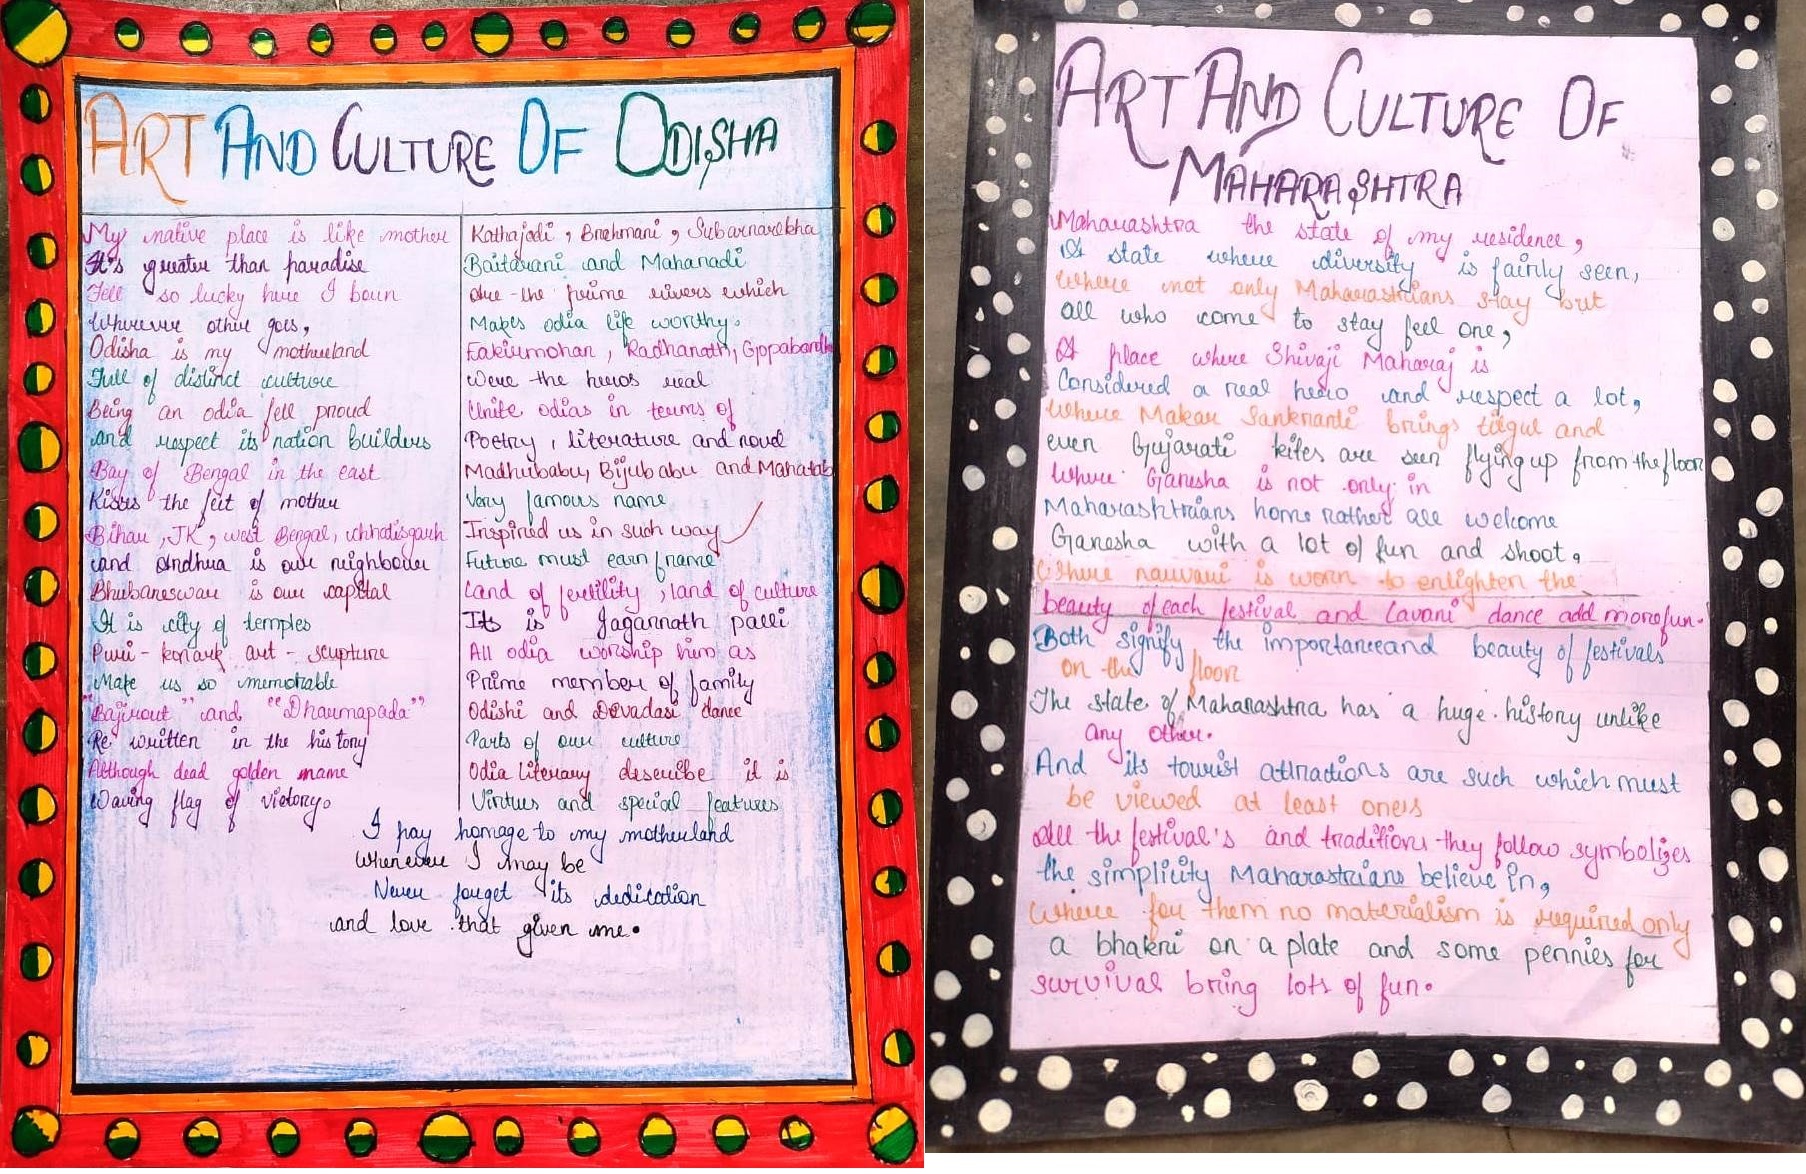 ART AND CULTURE OF ODISHA
My native place is like mother
It's greater than paradise
Fell so lucky here I born
Wherever other goes,
Odisha is my motherland
Full of distinct culture
Being an odia fell proud
and respect its nation builders
Bay of Bengal in the east
Kisses the feet of mother
Bihar, JK, west Bengal, chhatisgarh
and Andhra is our neighbour
Bhubaneswar is our capital
It is city of temples
Puri-konark art-scupture
Make us so memorable
"Bajirout" and "Dharmapada"
Re written in the history
Although dead golden name
Waving flag of victory.
Kathajodi, Brahmani, Subarnarekha
Baitarani and Mahanadi
are the prime rivers which
Makes odia life worthy.
Fakirmohan, Radhanath, Gopabandh
Were the heros real
Unite odias in terms of
Poetry, literature and novel
Madhubabu, Bijubabu and Mahatab
Very famous name
Inspired us in such way
Future must earn name
Land of fertility, land of culture
Its is Jagannath palli
All odia worship him as
Prime member of family
Odishi and Devadasi dance
Parts of our culture
Odia literary describe it is
Virtues and special features
I pay homage to my motherland
wherever I may be
Never forget its dedication
and love that given me.
ART AND CULTURE OF
MAHARASHTRA
Maharashtra the state of my residence,
A state where diversity is fairly seen,
Where not only Maharastrians stay but
all who come to stay feel one,
A place where Shivaji Maharaj is
Considered a real hero and respect a lot,
Where Makar Sankranti brings tilgul and
even Gujarati kites are seen flying up from the floor
Where Ganesha is not only in
Maharashtrians home rather all welcome
Ganesha with a lot of fun and shoot,
Where nauvari is worn to enlighten the
beauty of each festival and Lavani dance add more fun.
Both signify the importance and beauty of festivals
on the floor
The state of Maharashtra has a huge history unlike
any other.
And its tourist attractions are such which must
be viewed at least oness
All the festival's and traditions they follow symbolizes
the simplicity Maharastrians believe in,
Where for them no materialism is required only
a bhakri on a plate and some pennies for
survival bring lots of fun.